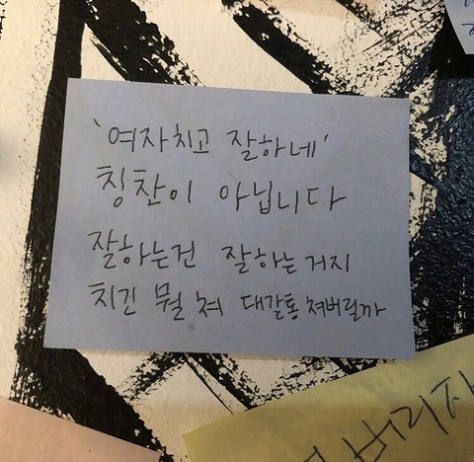 '여자치고 잘하네'
칭찬이 아닙니다
잘하는건 잘하는거지
치긴 뭘 쳐 대갈통 쳐버릴까
버리자